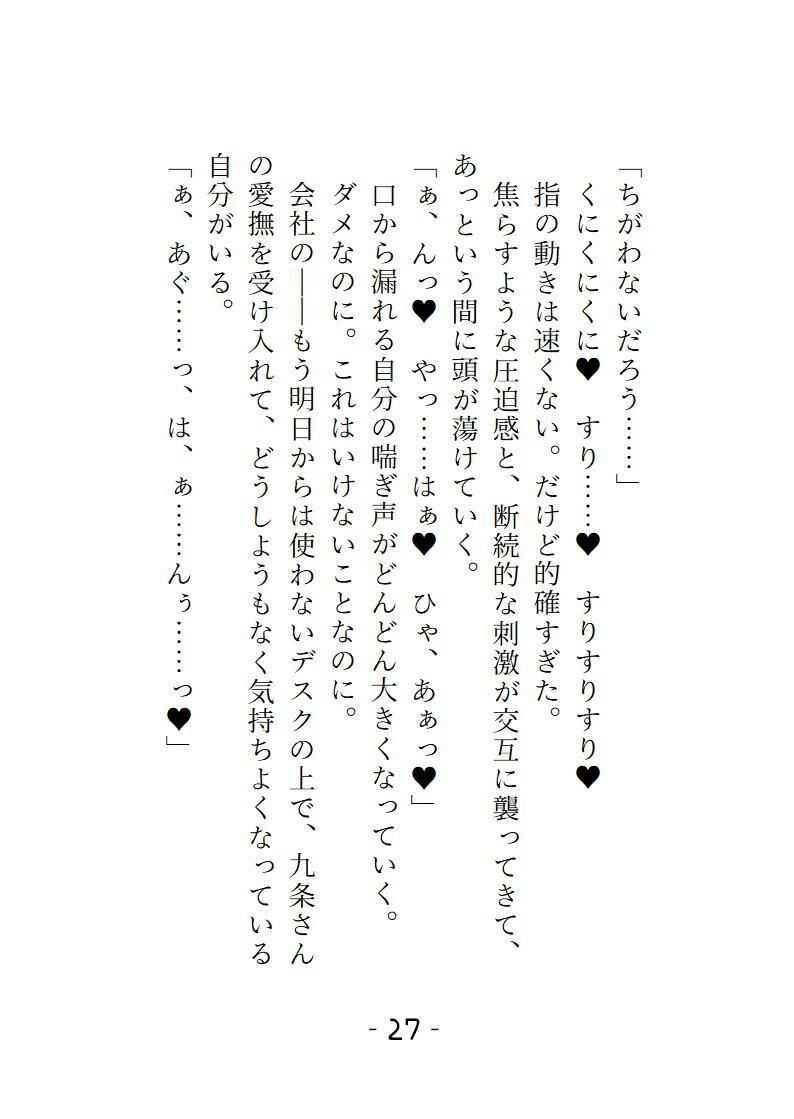 「ちがわないだろう……」
　くにくにくに♥　すり……♥　すりすりすり♥
　指の動きは速くない。だけど的確すぎた。
　焦らすような圧迫感と、断続的な刺激が交互に襲ってきて、
あっという間に頭が蕩けていく。
「ぁ、んっ♥　やっ……はぁ♥　ひゃ、あぁっ♥」
　口から漏れる自分の喘ぎ声がどんどん大きくなっていく。
　ダメなのに。これはいけないことなのに。
　会社の――もう明日からは使わないデスクの上で、九条さん
の愛撫を受け入れて、どうしようもなく気持ちよくなっている
自分がいる。
「ぁ、あぐ……っ、は、ぁ……んぅ……っ♥」
- 27 -